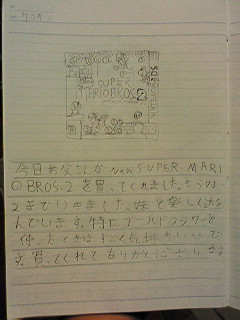 SUPER
MARIO BROS.
2
今日お父さんがNEW SUPER MARI
O BROS.2を買ってくれました。もうW
2までいきました。妹と楽しくあそ
んでいます。特にゴールドフラワーを
使ったときは、すごく気持ちいいで
す。買ってくれてありがとうございます